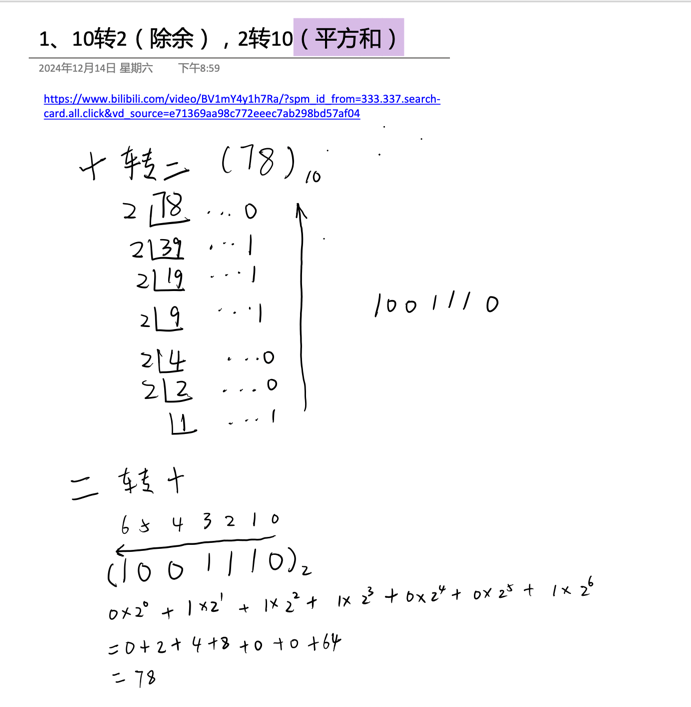 1、10转2（除余），2转10（平方和）
2024年12月14日 星期六 下午8:59
https://www.bilibili.com/video/BV1mY4y1h7Ra/?spm_id_from=333.337.search-
card.all.click&vd_source=e71369aa98c772eeec7ab298bd57af04
十转二 (78)₁₀
2 78 ... 0
2 39 ... 1
2 19 ... 1
2 9 ... 1
2 4 ... 0
2 2 ... 0
1 ... 1
1001110
二转十
6 5 4 3 2 1 0
(1001110)₂
0×2⁰ + 1×2¹ + 1×2² + 1×2³ + 0×2⁴ + 0×2⁵ + 1×2⁶
=0+2+4+8+0+0+64
=78